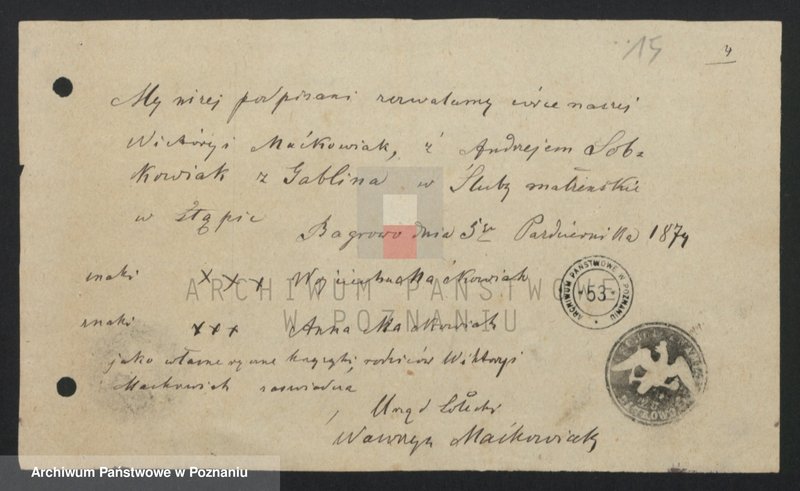 15
4
My niżej podpisani zezwalamy córce naszej
Wictóryi Maćkowiak, z Andrzejem Sob=
kowiak z Gablina w Śluby matrenskie
w stąpic
Bagrowo dnia 5go Pazdziernika 1874
znaki xxx Wojciech Maćkowiak
znaki xxx Anna Maćkowiak
jako własnoręczne krzyżyki rodziców Wiktoryi
Maćkowiak zaświadcza
Urząd Sołecki
Wawrzyn Maćkowiak
ARCHIWUM PAŃSTWOWE W POZNANIU
53
ARCHIWUM PAŃSTWOWE
W POZNANIU
Archiwum Państwowe w Poznaniu